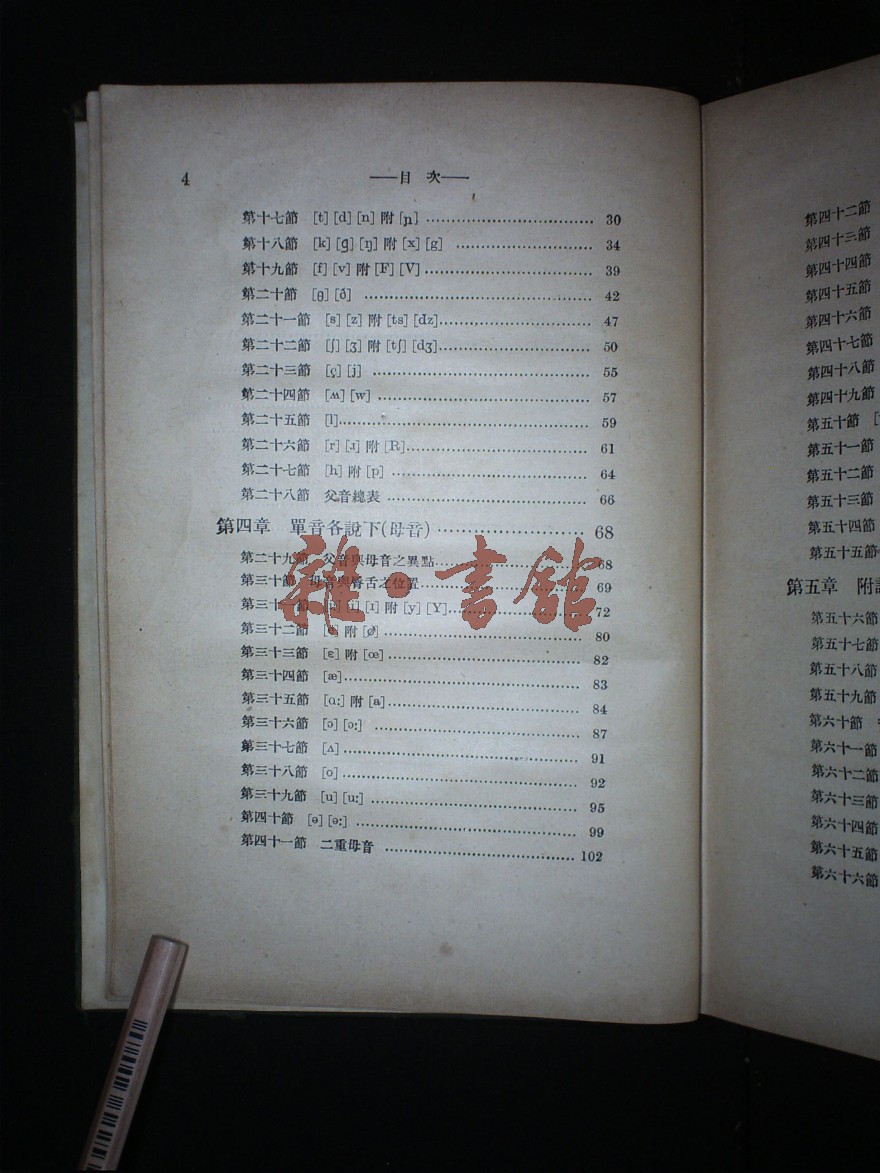 4 ——目 次——
第十七節 [t] [d] [n] 附 [ɲ] ........ 30
第十八節 [k] [ɡ] [ŋ] 附 [x] [g] ........ 34
第十九節 [f] [v] 附 [F] [V] ........ 39
第二十節 [θ] [ð] ........ 42
第二十一節 [s] [z] 附 [ts] [dz] ........ 47
第二十二節 [ʃ] [ʒ] 附 [tʃ] [dʒ] ........ 50
第二十三節 [ç] [j] ........ 55
第二十四節 [ʍ] [w] ........ 57
第二十五節 [l] ........ 59
第二十六節 [r] [ɹ] 附 [R] ........ 61
第二十七節 [h] 附 [p] ........ 64
第二十八節 父音總表 ........ 66
第四章 單音各說下(母音) ........ 68
第二十九節 父音與母音之異點 ........ 68
第三十節 母音與脣舌之位置 ........ 69
第三十一節 [i] [ɪ] 附 [y] [Y] ........ 72
第三十二節 附 [ø] ........ 80
第三十三節 [ɛ] 附 [œ] ........ 82
第三十四節 [æ] ........ 83
第三十五節 [ɑ:] 附 [a] ........ 84
第三十六節 [ɔ] [ɔ:] ........ 87
第三十七節 [ʌ] ........ 91
第三十八節 [o] ........ 92
第三十九節 [u] [u:] ........ 95
第四十節 [ə] [ə:] ........ 99
第四十一節 二重母音 ........ 102
雜·書館
第四十二節
第四十三節
第四十四節
第四十五節
第四十六節
第四十七節
第四十八節
第四十九節
第五十節
第五十一節
第五十二節
第五十三節
第五十四節
第五十五節
第五章 附
第五十六節
第五十七節
第五十八節
第五十九節
第六十節
第六十一節
第六十二節
第六十三節
第六十四節
第六十五節
第六十六節